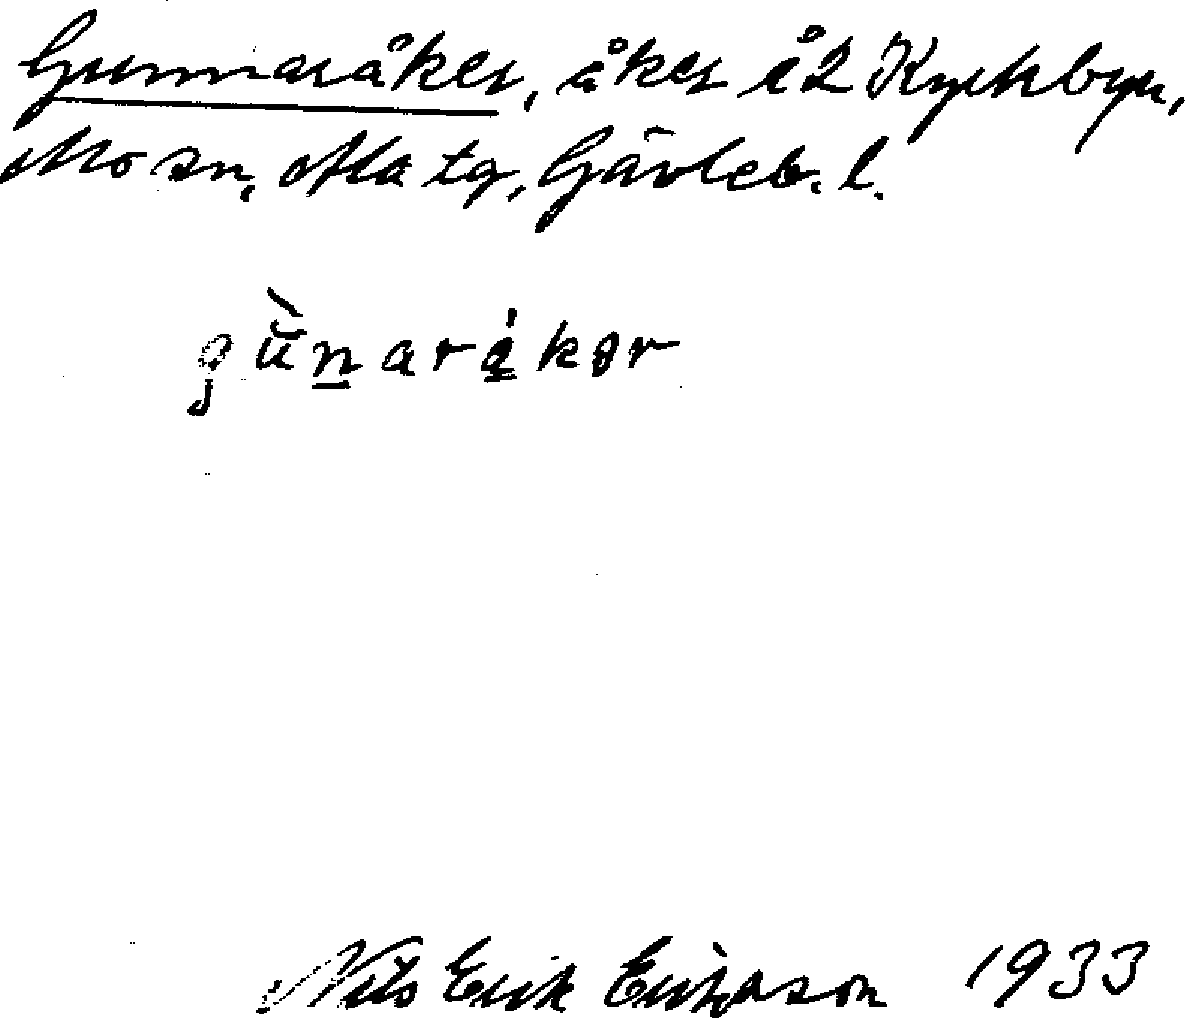 Gunnaråker, åker i å2 Kyrkbyn,
Mo sn, Ala tg, Gävleb. l.
gùnarákər
Nils Erik Erikson 1933